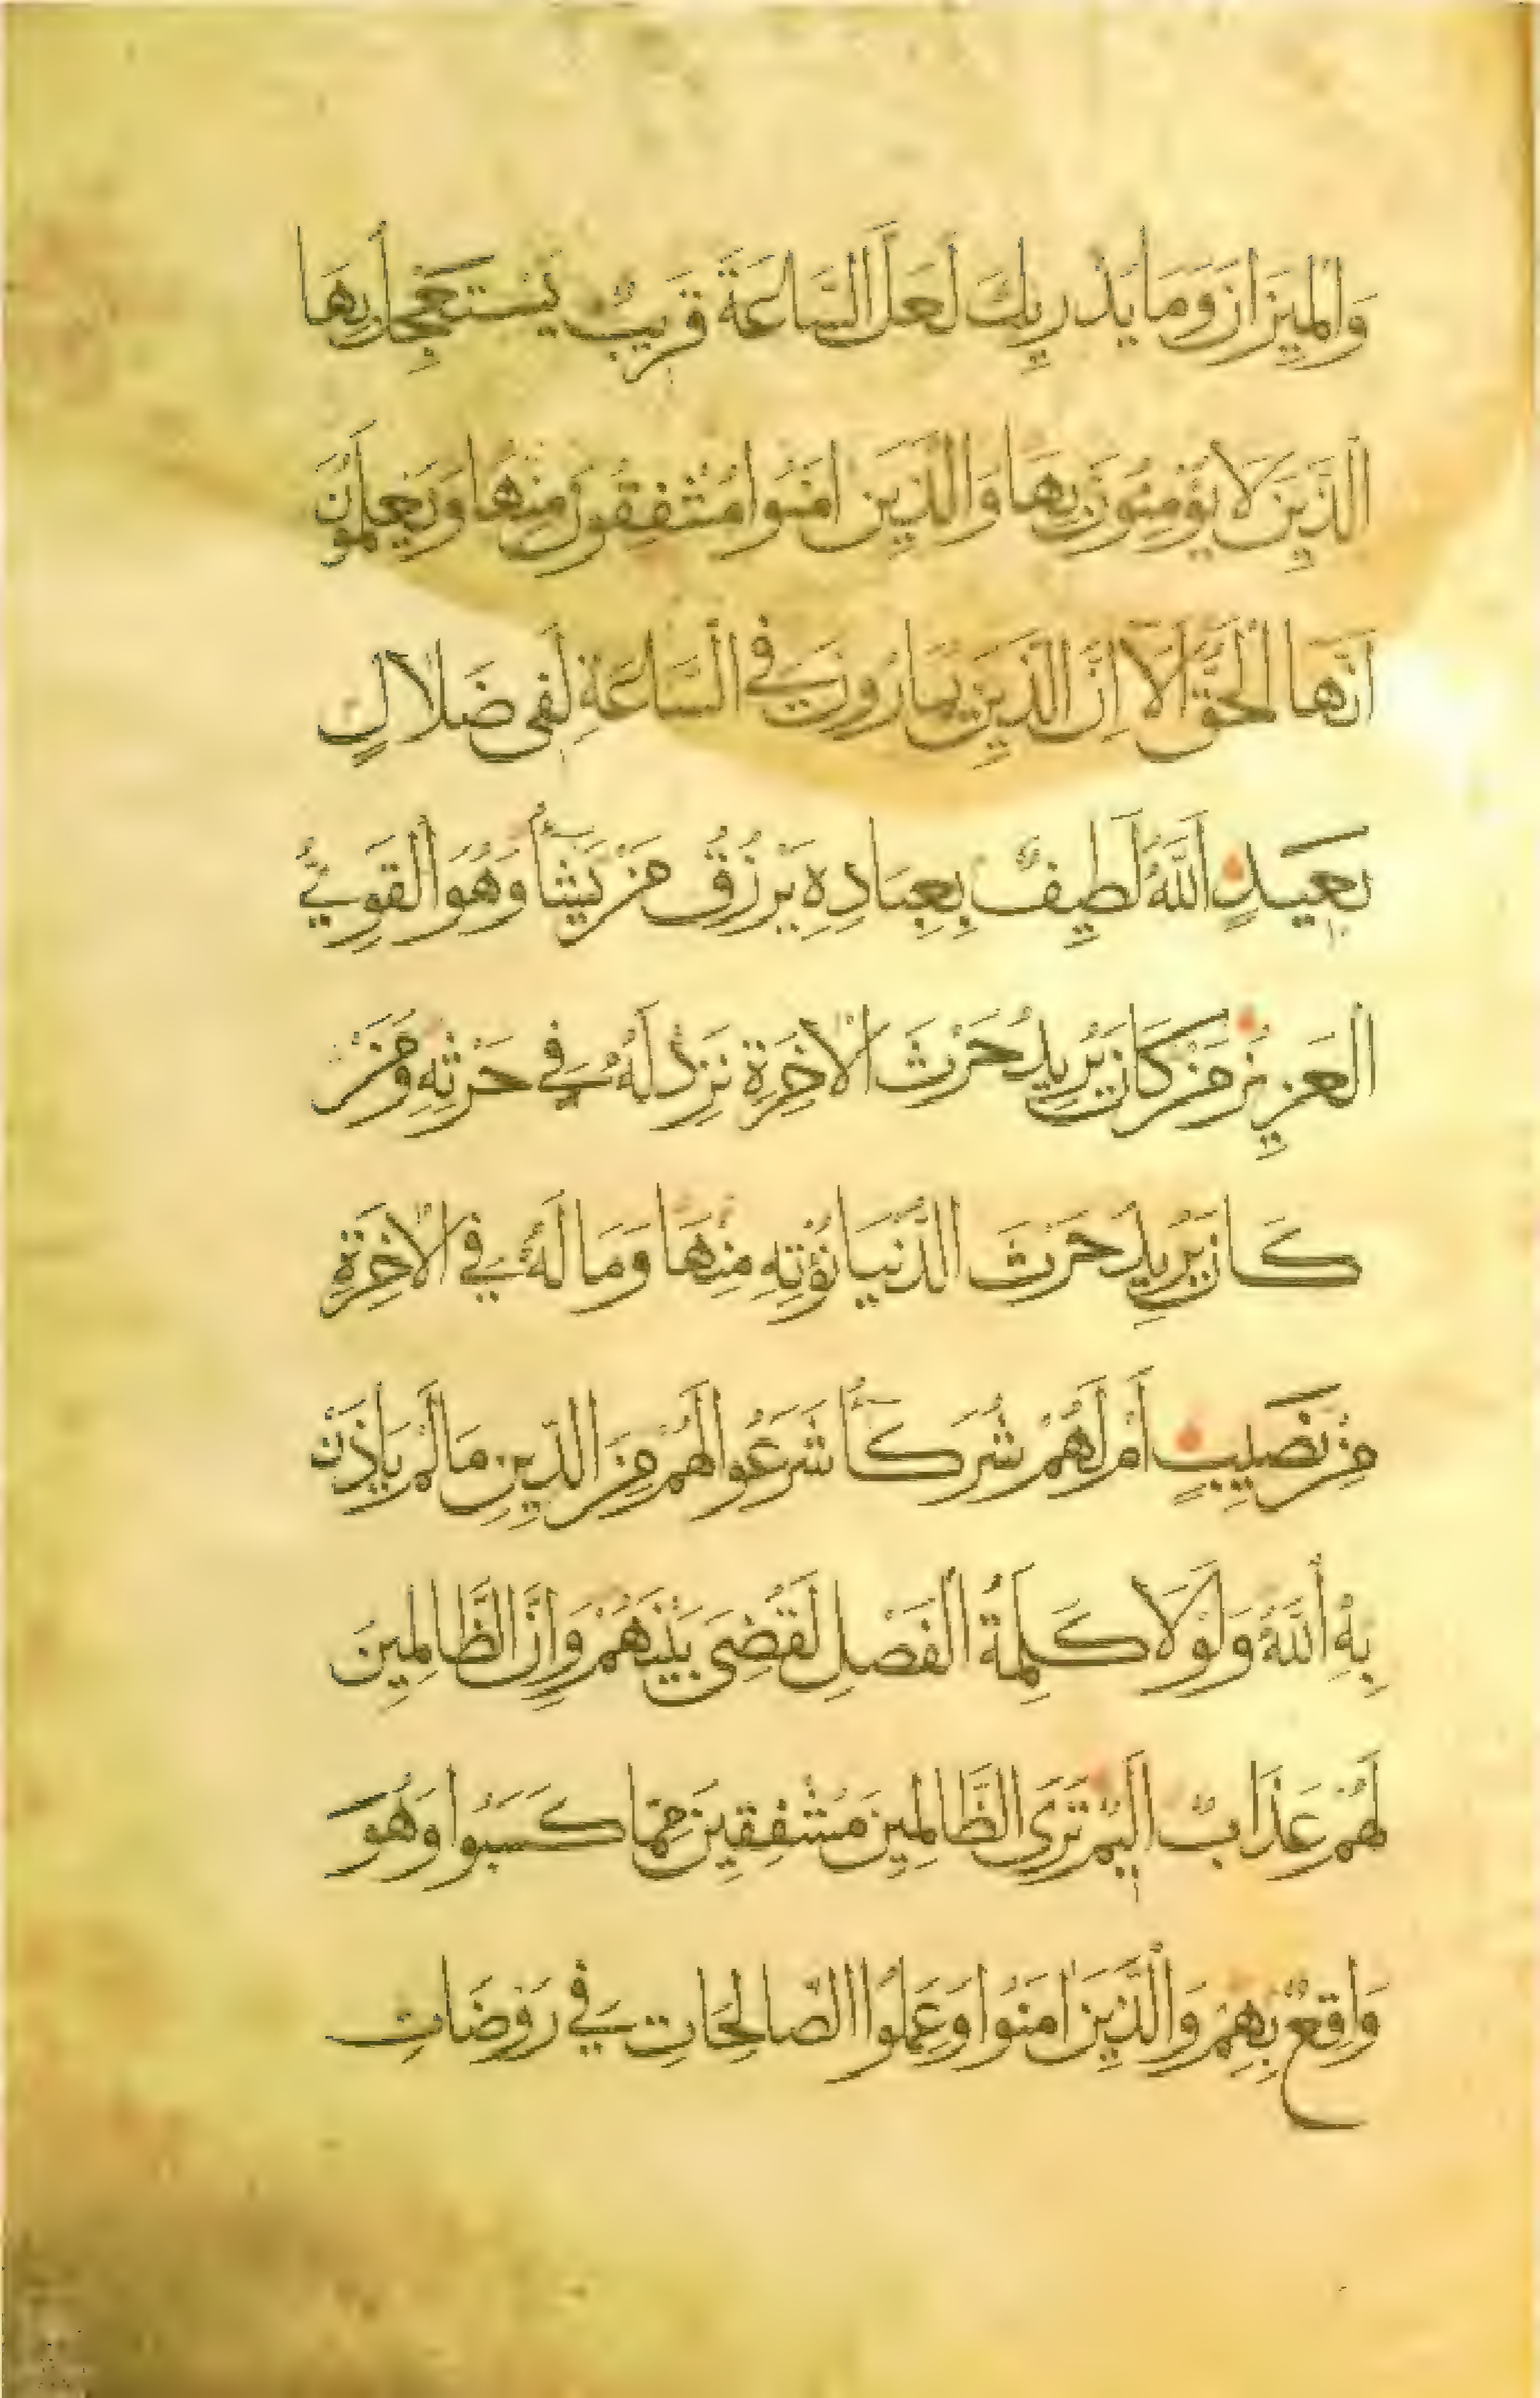 وَالْمِيزَانَ وَمَا يُدْرِيكَ لَعَلَّ السَّاعَةَ قَرِيبٌ يَسْتَعْجِلُ بِهَا
الَّذِينَ لَا يُؤْمِنُونَ بِهَا وَالَّذِينَ اٰمَنُوا مُشْفِقُونَ مِنْهَا وَيَعْلَمُونَ
اَنَّهَا الْحَقُّ اَلَا اِنَّ الَّذِينَ يُمَارُونَ فِي السَّاعَةِ لَفِي ضَلَالٍ
بَعِيدٍ اَللَّهُ لَطِيفٌ بِعِبَادِهِ يَرْزُقُ مَنْ يَشَٓأُ وَهُوَ الْقَوِيُّ
الْعَزِيزُ مَنْ كَانَ يُرِيدُ حَرْثَ الْاٰخِرَةِ نَزِدْ لَهُ فِي حَرْثِهِ وَمَنْ
كَانَ يُرِيدُ حَرْثَ الدُّنْيَا نُؤْتِهِ مِنْهَا وَمَا لَهُ فِي الْاٰخِرَةِ
مِنْ نَصِيبٍ اَمْ لَهُمْ شُرَكَٓأُ شَرَعُوا لَهُمْ مِنَ الدِّينِ مَا لَمْ يَأْذَنْ
بِهِ اللَّهُ وَلَوْلَا كَلِمَةُ الْفَصْلِ لَقُضِيَ بَيْنَهُمْ وَاِنَّ الظَّالِمِينَ
لَهُمْ عَذَابٌ اَلِيمٌ تَرَى الظَّالِمِينَ مُشْفِقِينَ مِمَّا كَسَبُوا وَهُوَ
وَاقِعٌ بِهِمْ وَالَّذِينَ اٰمَنُوا وَعَمِلُوا الصَّالِحَاتِ فِي رَوْضَاتِ